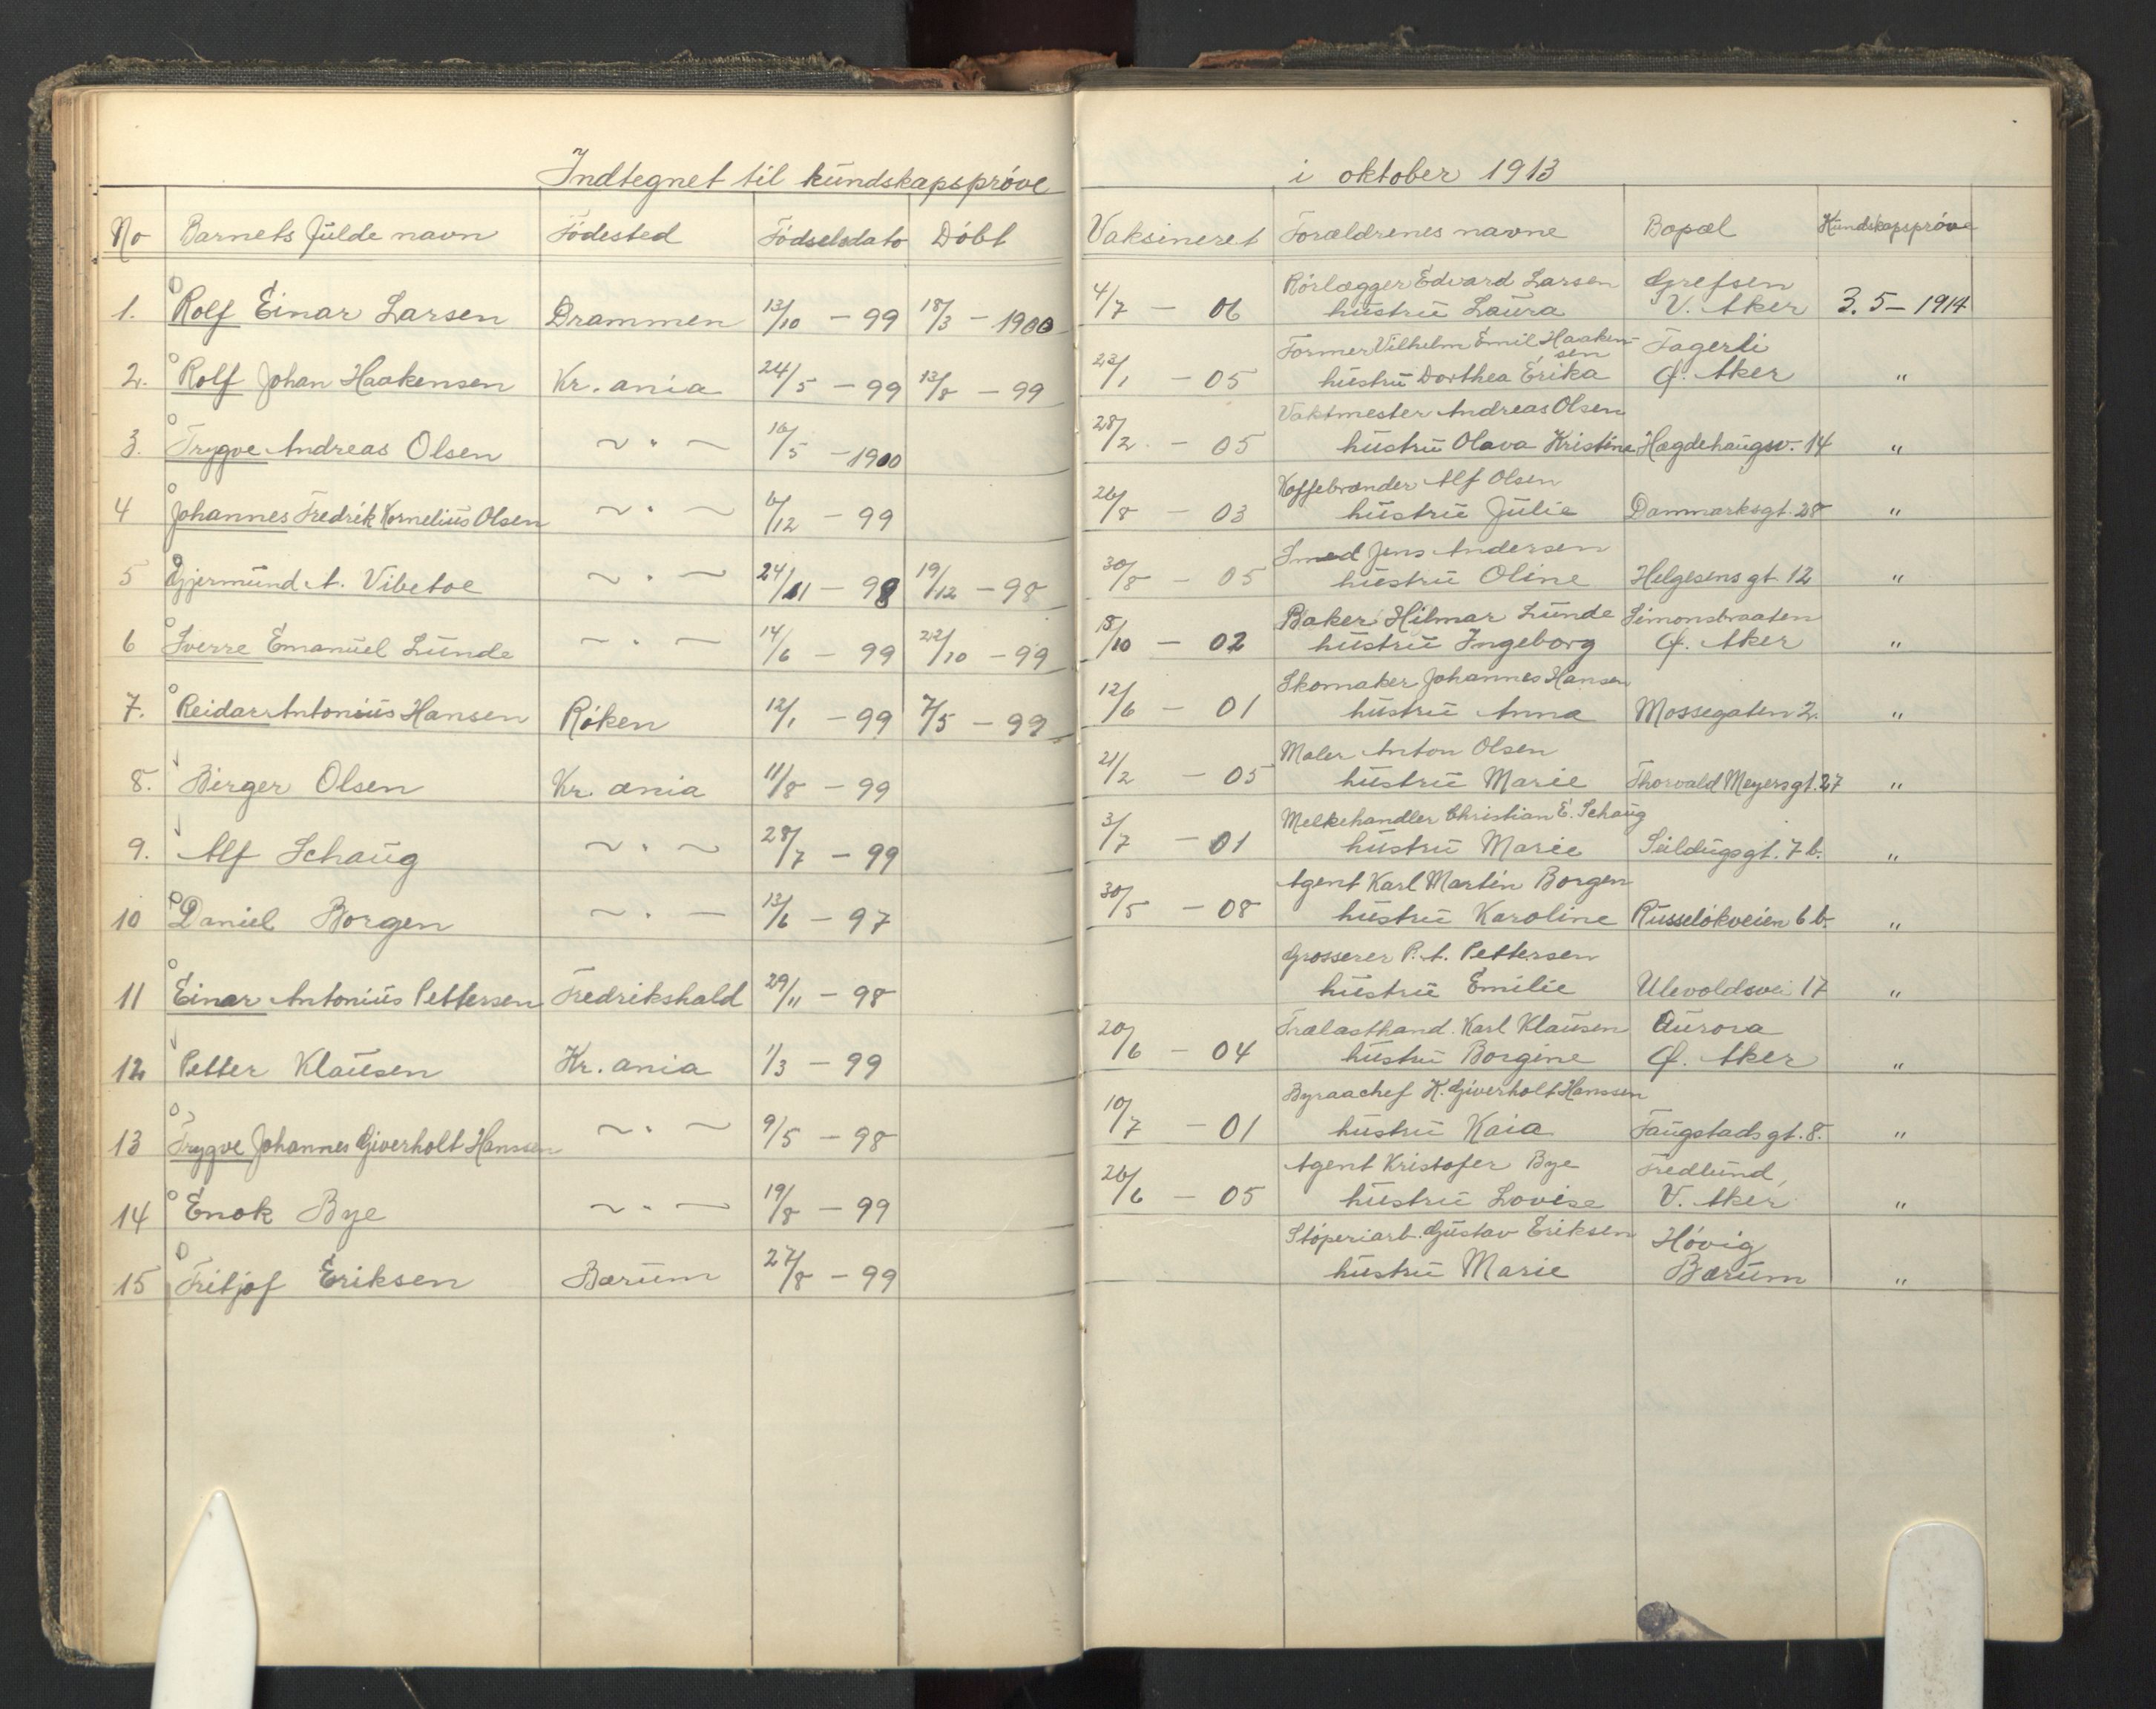 Indtegnet til kundskapsprøve i oktober 1913
No Barnets fulde navn Födested Födselsdato Döbt Vaksineret Forældrenes navne Bopæl Kundskapsprøve
1. Rolf Einar Larsen Drammen 13/10 - 99 18/3 - 1900 4/7 - 06 Rörlægger Edvard Larsen Grefsen
hustru Laura V. Aker 3.5 - 1914
2. Rolf Johan Haakensen Kr.ania 24/5 - 99 13/8 - 99 23/1 - 05 Former Vilhelm Emil Haaken- Fagerli
sen
hustru Dorthea Erika Ø. Aker "
3. Trygve Andreas Olsen ~ " ~ 16/5 - 1900 28/2 - 05 Vaktmester Andreas Olsen
hustru Olava Kristine Hægdehaugsv. 14 "
4 Johannes Fredrik Kornelius Olsen ~ " ~ 6/12 - 99 26/8 - 03 Kaffebrander Alf Olsen
hustru Julie Danmarksgt. 28 "
5 Gjermund A. Vibetoe ~ " ~ 24/11 - 98 19/12 - 98 30/8 - 05 Smed Jens Andersen
hustru Oline Helgesens gt. 12 "
6 Sverre Emanuel Lunde ~ " ~ 14/6 - 99 22/10 - 99 18/10 - 02 Baker Hilmar Lunde Simonsbraaten
hustru Ingeborg Ø. Aker "
7. Reidar Antonius Hansen Röken 12/1 - 99 7/5 - 99 12/6 - 01 Skomaker Johannes Hansen
hustru Anna Mossegaten 2. "
8. Birger Olsen Kr.ania 11/8 - 99 21/2 - 05 Maler Anton Olsen
hustru Marie Thorvald Meyersgt. 27 "
9. Alf Schaug ~ " ~ 28/7 - 99 3/7 - 01 Melkehandler Christian E. Schaug
hustru Marie Seildugsgt. 7 b. "
10 Daniel Borgen ~ " ~ 13/6 - 97 30/5 - 08 Agent Karl Martin Borgen
hustru Karoline Russelökveien 6 b. "
11 Einar Antonius Pettersen Fredrikshald 29/11 - 98 Grosserer P. A. Pettersen
hustru Emilie Ulevoldsvei 17 "
12 Petter Klausen Kr.ania 1/3 - 99 20/6 - 04 Trælasthand. Karl Klausen Aurora
hustru Borgine Ø. Aker "
13 Trygve Johannes Giverholt Hanssen ~ " ~ 9/5 - 98 10/7 - 01 Byraachef K. Giverholt Hanssen
hustru Kaia Faugstadsgt. 8. "
14 Enok Bye ~ " ~ 19/8 - 99 26/6 - 05 Agent Kristofer Bye Fredlund,
hustru Lovise V. Aker "
15 Fritjof Eriksen Bærum 27/8 - 99 Stöperiarb. Gustav Eriksen Hövig
hustru Marie Bærum "